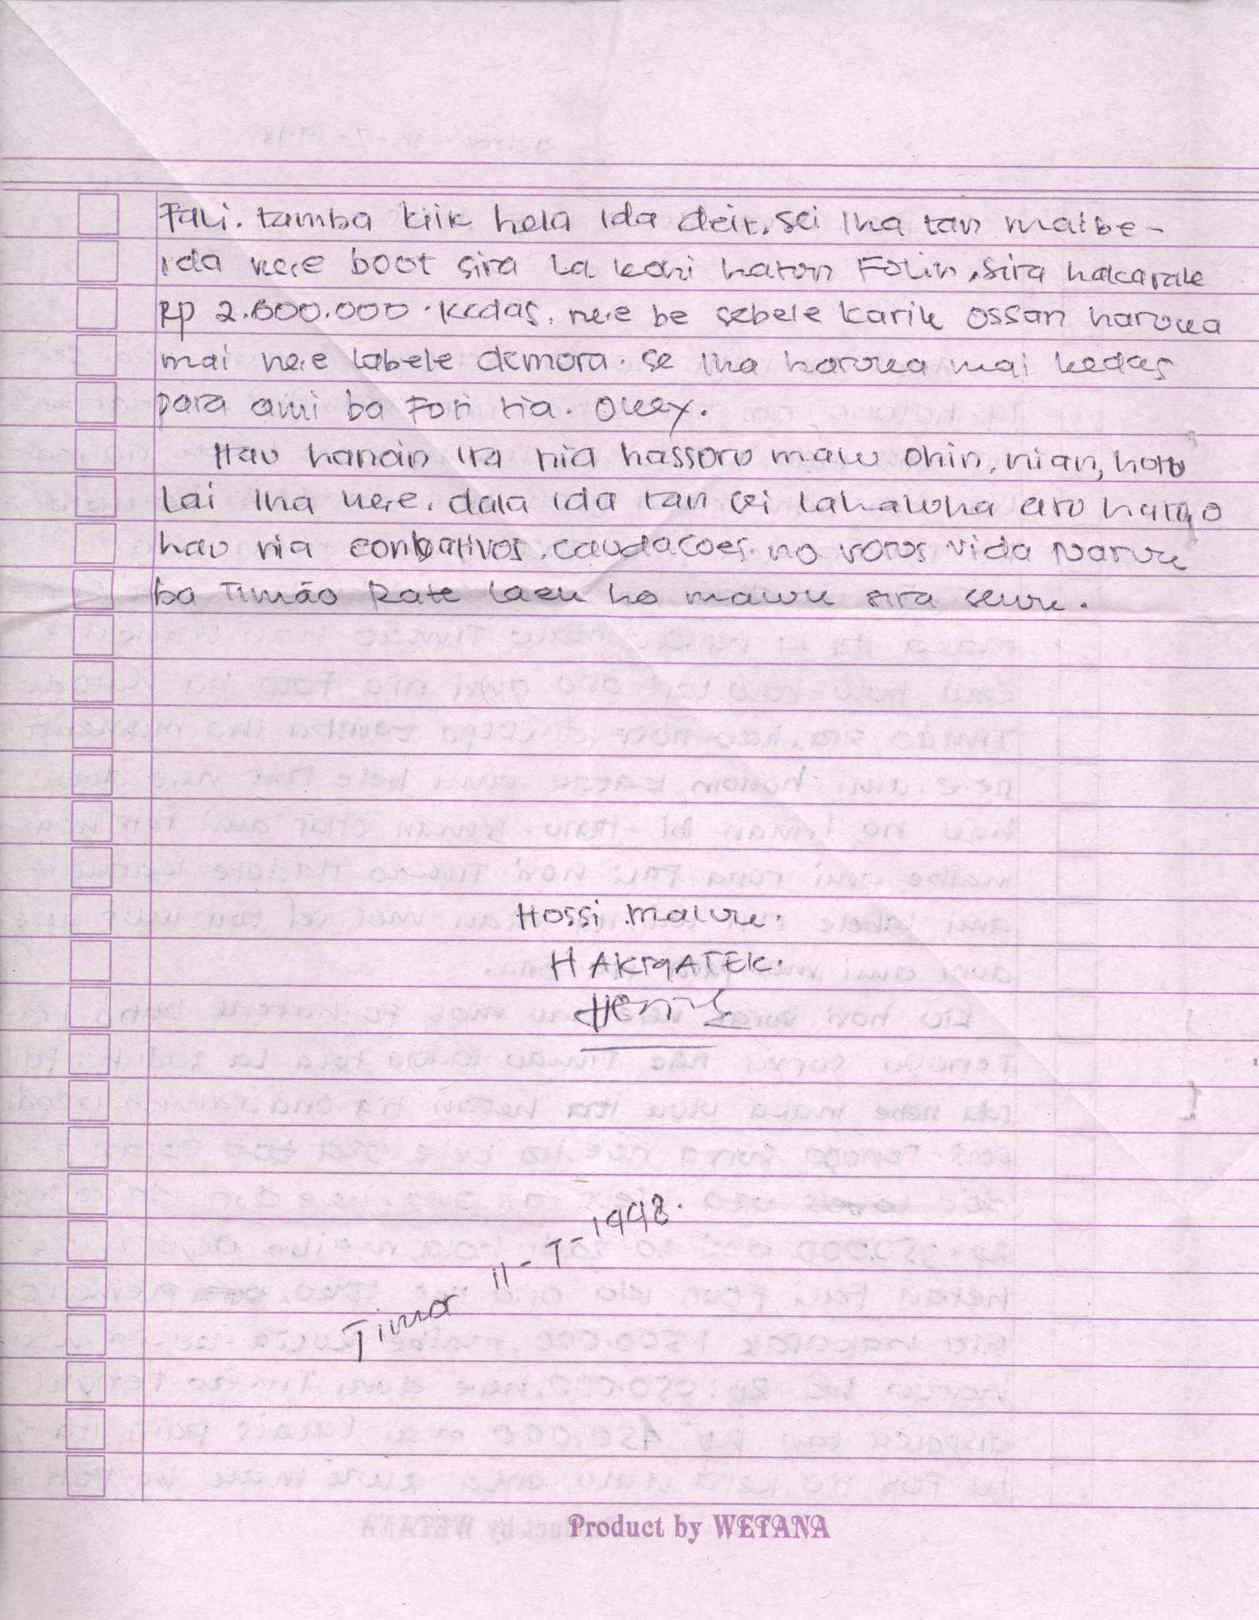 Fali. tamba kiik hela ida deit, sei iha tan maibe-
ida ne.e boot sira la kohi hatun Folin, sira hakarak
Rp 2.600.000. kedas, ne.e be sebele karik ossan haruka
mai ne.e labele demora. se iha haruka mai kedas
para ami ba Foti tia. Okey.
Hau hanoin ita nia hassoru malu ohin, nian, hotu
lai iha ne.e, dala ida tan sei lahaluha atu hato
hau nia conbativos, caudacoes no votos vida Naruk
ba Timão Rate laek ho maluk sira seluk.
Hossi maluk.
HAKMATEK.
Timor 11-7-1998.
Product by WETANA